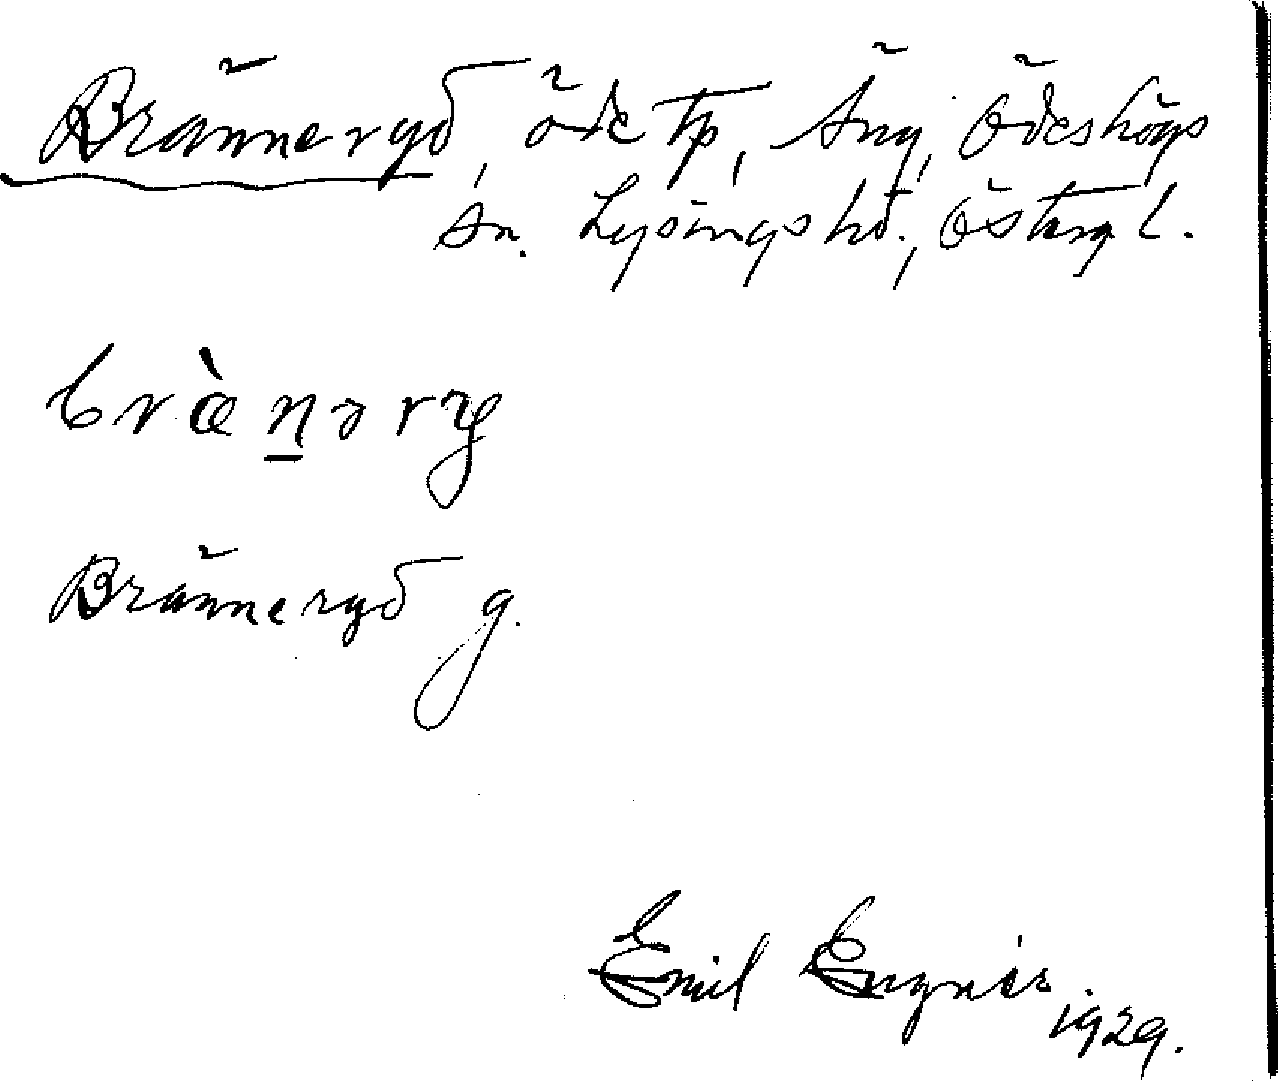 Bränneryd, öde tp, Äng, Ödeshögs
sn. Lysings hd., Östergl.
bræ̀nəry
Bränneryd g.
Emil Engnér
1929.